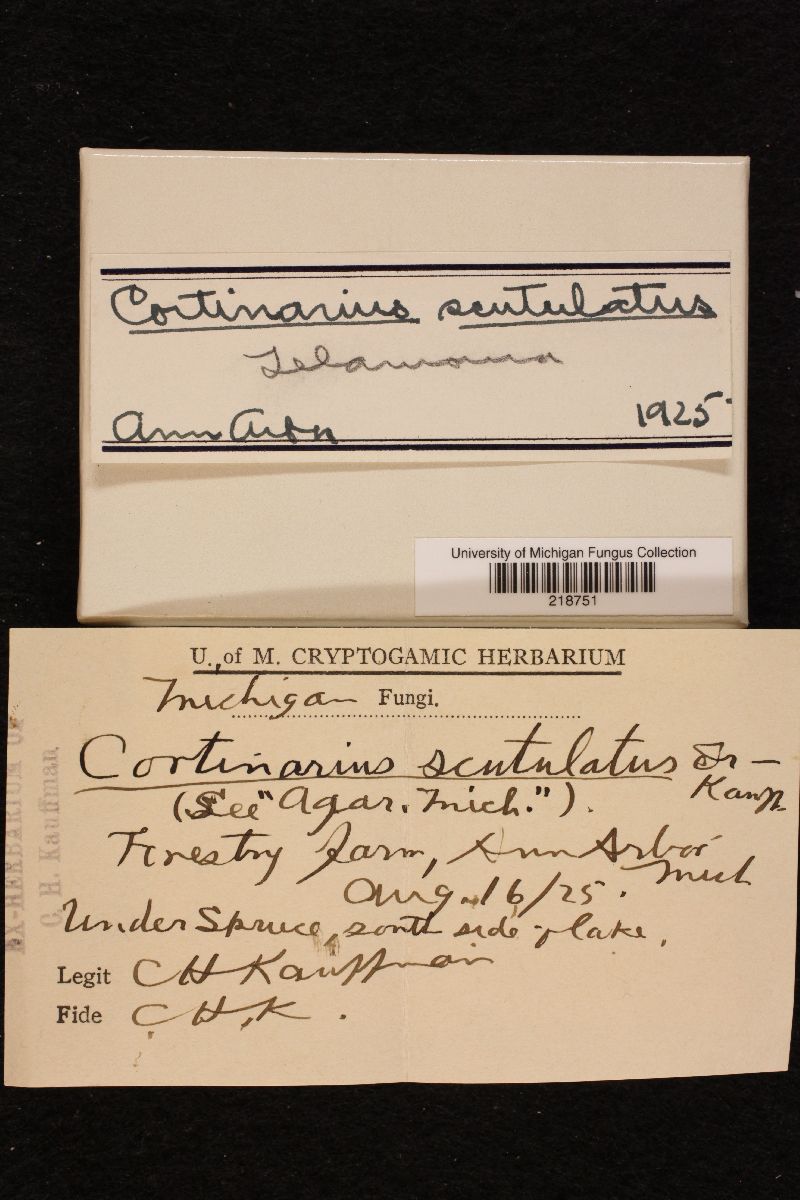 Cortinarius scutulatus
Telamonia
Ann Arbor 1925
University of Michigan Fungus Collection
218751
U. of M. CRYPTOGAMIC HERBARIUM
Michigan Fungi.
Cortinarius scutulatus Fr-
Kauff.
(See "Agar. Mich.").
Forestry farm, Ann Arbor
Mich
Aug. 16/25.
Under Spruce, south side of lake.
Legit CH Kauffman
Fide C.H.K.
EX-HERBARIUM OF
C. H. Kauffman